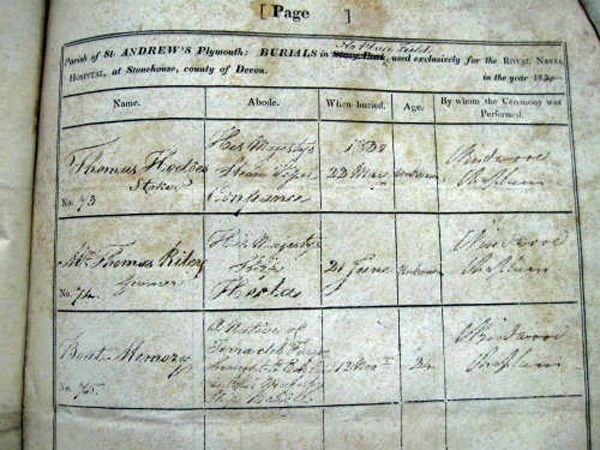 [ Page ]
Parish of St. ANDREW'S Plymouth: BURIALS in No Place Field, used exclusively for the ROYAL NAVAL
HOSPITAL, at Stonehouse, county of Devon. in the year 1830
Name. Abode. When buried. Age. By whom the Ceremony was Performed.
Thomas Hodges
Stoker
No. 73
His Majesty's
Steam
Confiance
1830
22 May
Unknown
Chaplain
Mr. Thomas Riley
Gunner
No. 74.
His Majesty's
Ship
Hecla
21 June
Unknown
Chaplain
Boat Memory
No. 75.
A Native of
Terra del Fuego
brought to
in His Majesty's
Ship
12 Nov
Chaplain